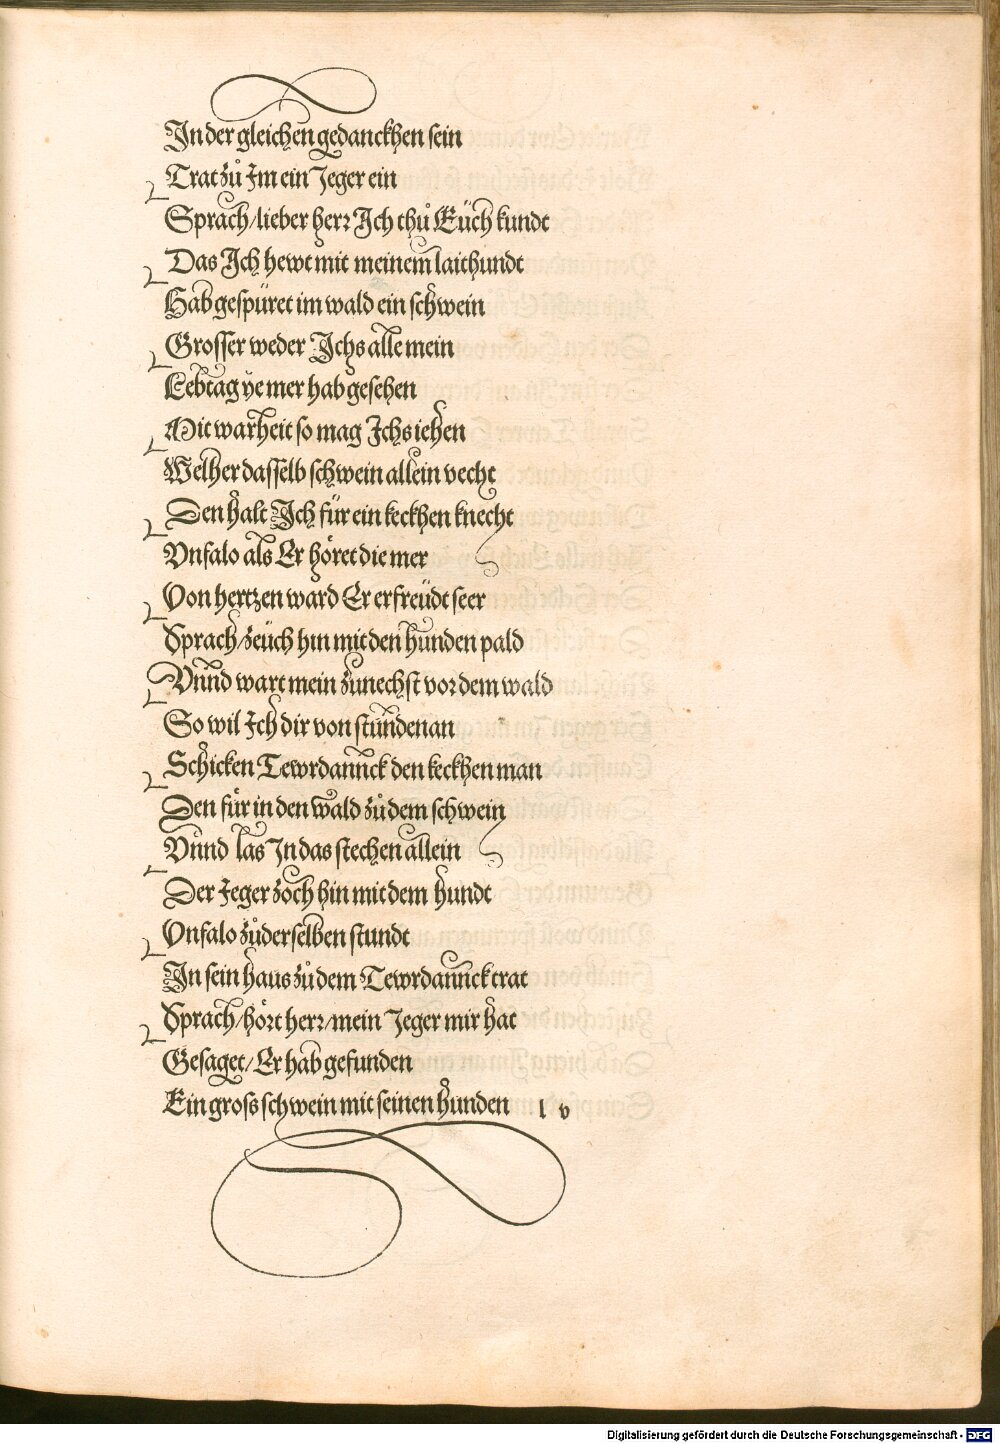 In der gleichen gedanckhen sein
Trat zů Im ein Jeger ein
Sprach/lieber herr Ich thů Eüch kundt
Das Ich hewt mit meinem laithundt
Hab gespüret im wald ein schwein
Grosser weder Ichs alle mein
Lebtag ye mer hab gesehen
Mit warheit so mag Ichs iehen
Welher dasselb schwein allein vecht
Den halt Ich für ein keckhen knecht
Vnfalo als Er höret die mer
Von hertzen ward Er erfreüdt seer
Sprach/zeüch hin mit den hunden pald
Vnnd wart mein zunechst vor dem wald
So wil Ich dir von stunden an
Schicken Tewrdannck den keckhen man
Den für in den wald zů dem schwein
Vnnd las In das stechen allein
Der Jeger zoch hin mit dem hundt
Vnfalo zů derselben stundt
In sein haus zů dem Tewrdannck trat
Sprach/hört herr/mein Jeger mir hat
Gesaget/Er hab gefunden
Ein gross schwein mit seinen hunden l v
Digitalisierung gefördert durch die Deutsche Forschungsgemeinschaft - DFG